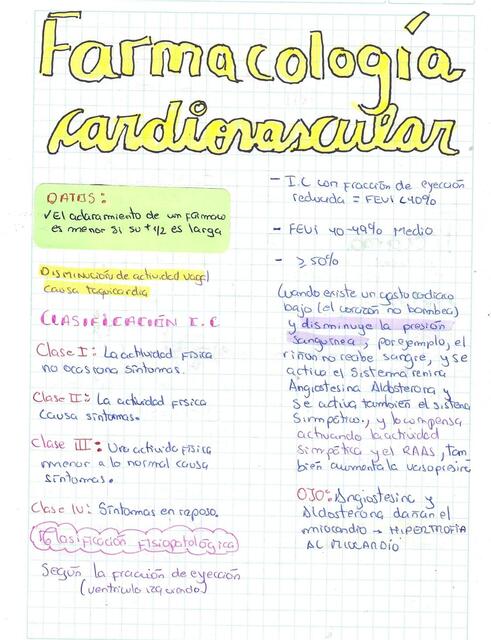 Farmacología
cardiovascular
DATOS:
✓El aclaramiento de un fármaco
es menor si su t 1/2 es larga
Disminución de actividad vagal
causa taquicardia
CLASIFICACIÓN I.C
Clase I: La actividad física
no ocasiona síntomas.
Clase II: La actividad física
causa síntomas.
Clase III: Una actividad física
menor a lo normal causa
síntomas.
Clase IV: Síntomas en reposo.
Clasificación fisiopatológica
Según la fracción de eyección
(ventrículo izquierdo)
- I.C con fracción de eyección
reducida = FEVI <40%
- FEVI 40-49% Medio
- ≥50%
Cuando existe un gasto cardiaco
bajo (el corazón no bombea)
y disminuye la presión
sanguínea, por ejemplo, el
riñón no recibe sangre, y se
activa el Sistema renina
Angiostesina Aldosterona y
se activa también el sistema
Simpático, y lo compensa
activando la actividad
simpática y el RAAS, tam
bién aumenta la vasopresina
OJO: Angiostesina y
Aldosterona dañan el
miocardio → HIPERTROFIA
AL MIOCARDIO